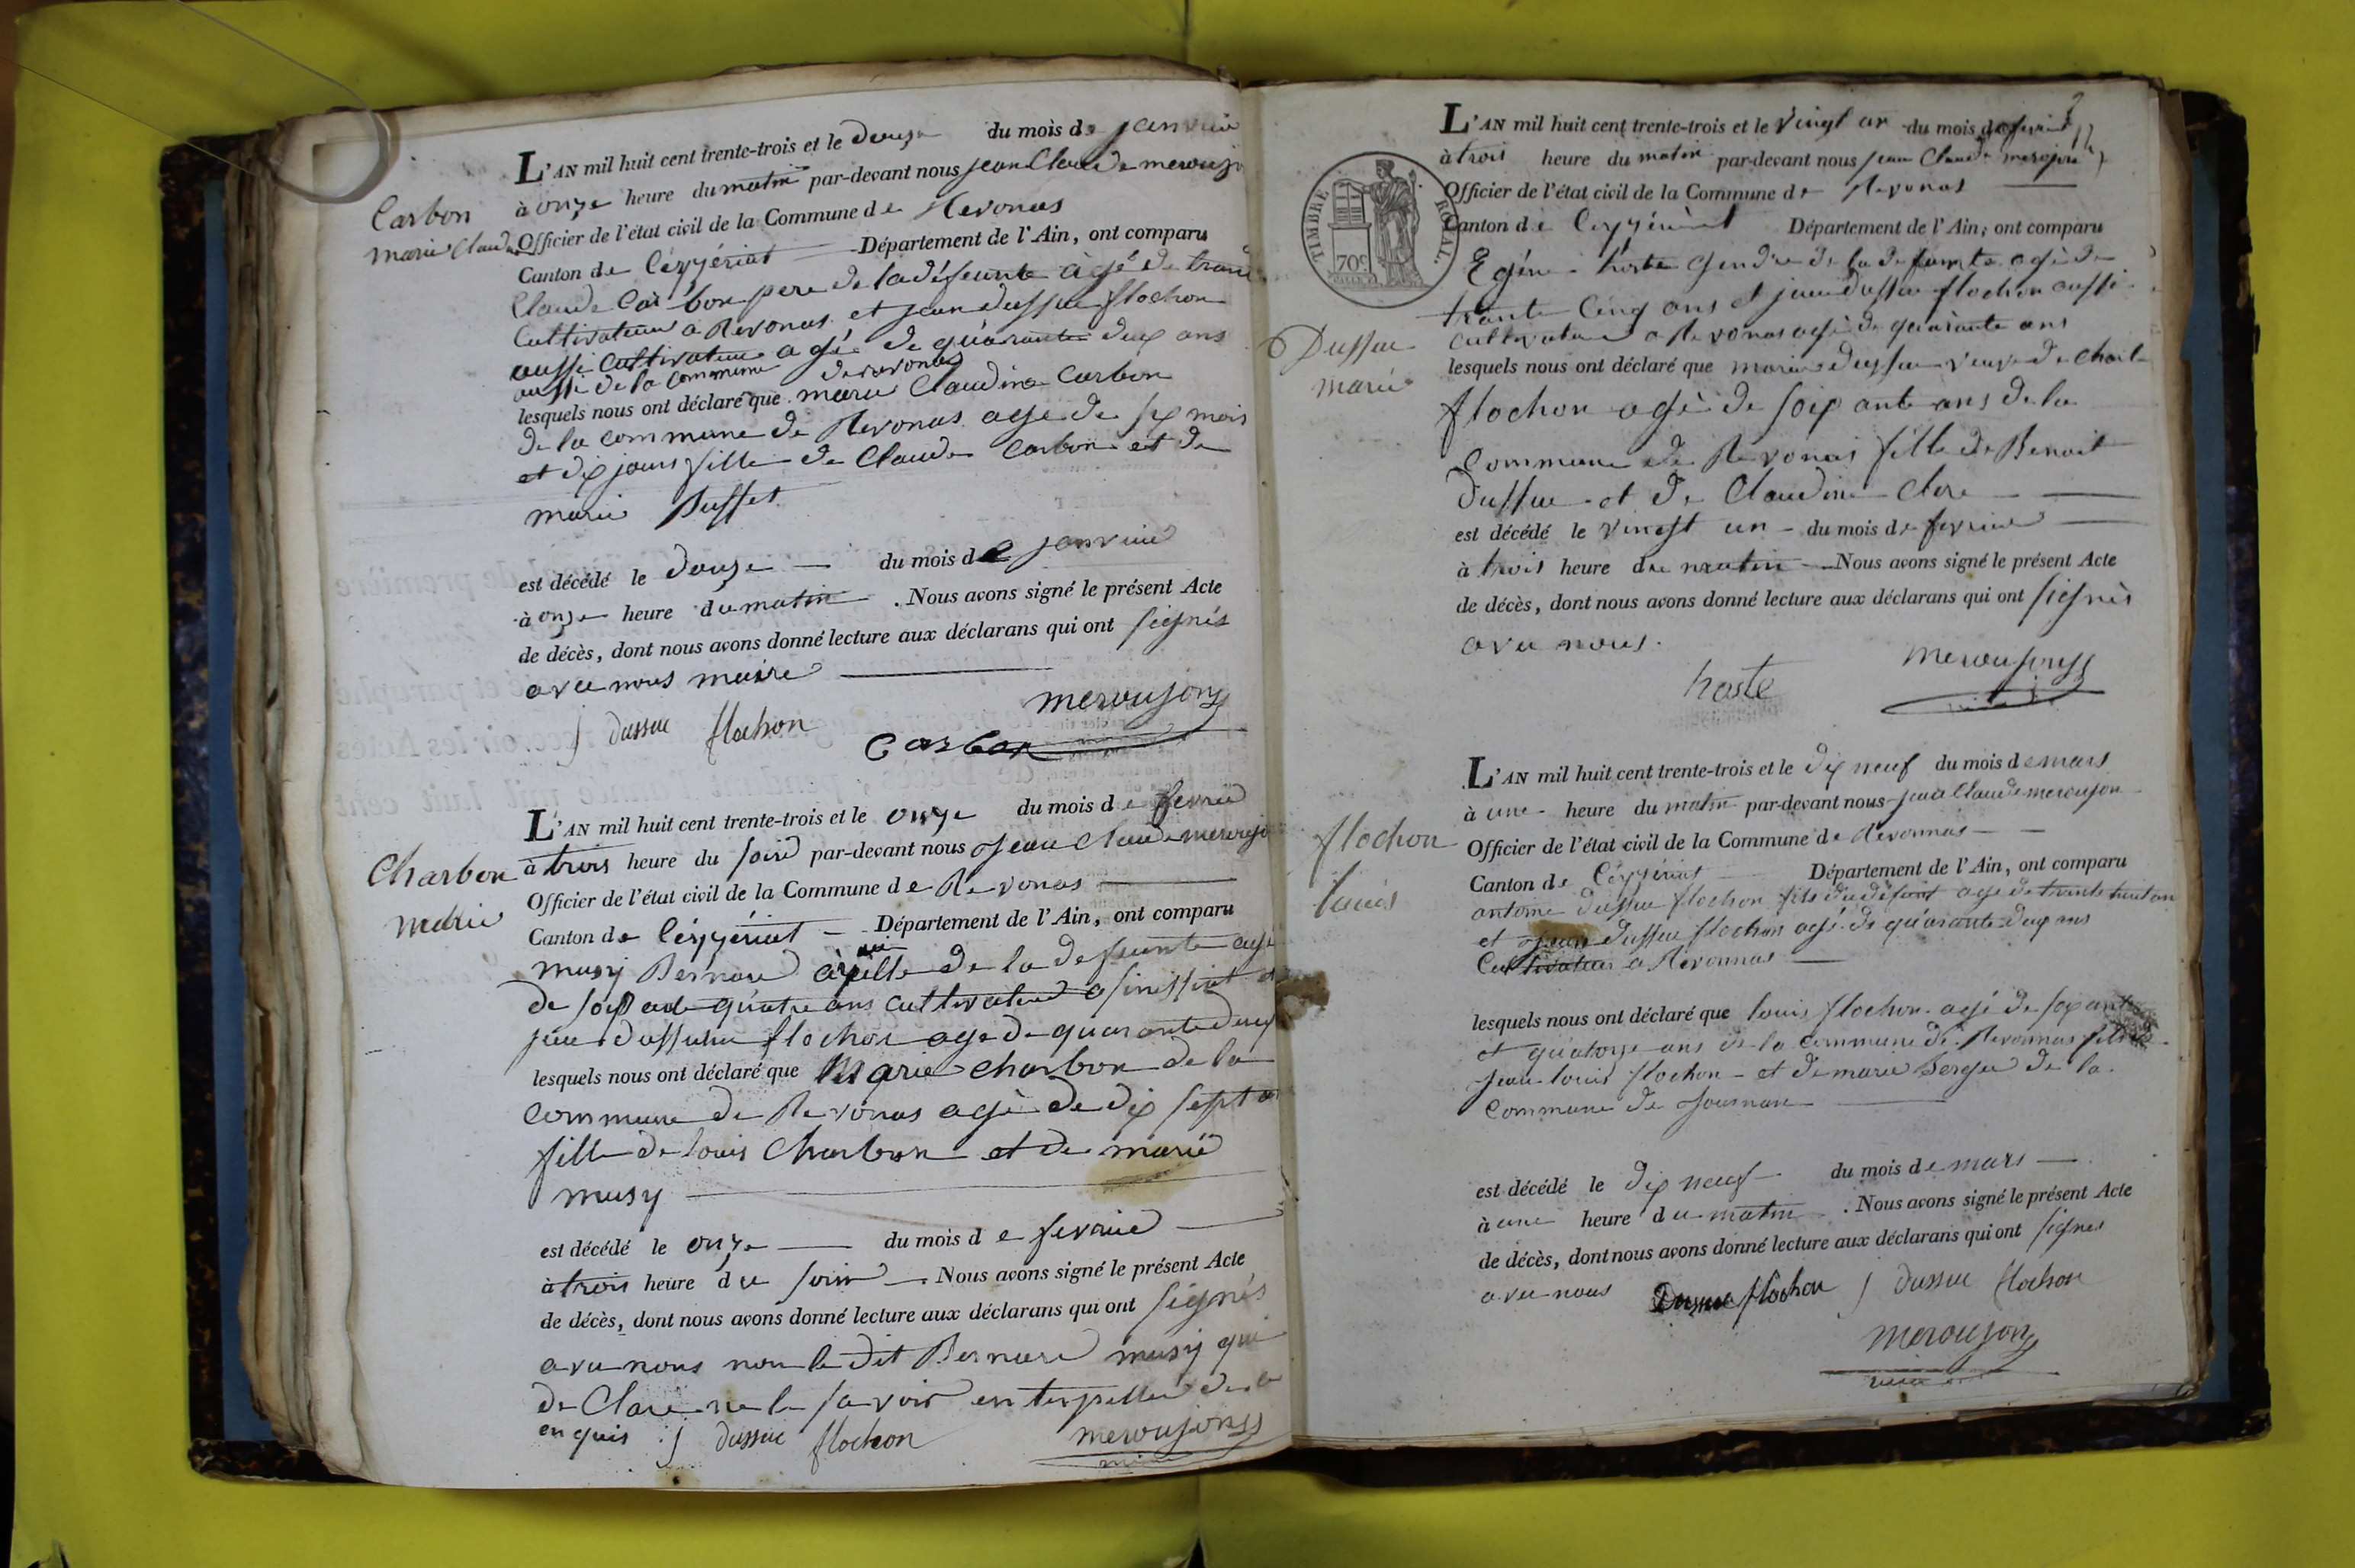 Carbon
marie Claudine
L'AN mil huit cent trente-trois et le douze du mois de janvier
à onze heure du matin par-devant nous jean Claude meroujo
Officier de l'état civil de la Commune de Revonas
Canton de Ceyzériat Département de l'Ain, ont comparu
Claude Carbon pere de la défeunte agé de trante
Cultivateur a Revonas et jean dussuc flochon
aussi cultivateur agé de quarante deux ans
aussi de la commune de revonas
lesquels nous ont déclaré que marie Claudine Carbon
de la commune de Revonas age de six mois
et dix jours fille de Claude Carbon et de
marie
est décédé le douze du mois de janvier
à onze heure du matin . Nous avons signé le présent Acte
de décès, dont nous avons donné lecture aux déclarans qui ont signés
avec nous maire
meroujon
j dussuc flochon
Carbon
Charbon
marie
L'AN mil huit cent trente-trois et le onze du mois de fevrie
à trois heure du soire par-devant nous jean Claude meroujo
Officier de l'état civil de la Commune de Revonas
Canton de Ceyzériat Département de l'Ain, ont comparu
musy Bernard de la defeunte agé
de soixante quatre ans cultivateur a
jean dussuc flochon age de quarante deux
lesquels nous ont déclaré que Marie Charbon de la
commune de Revonas agé de dix sept an
fille de louis Charbon et de marie
musy
est décédé le onze du mois de fevrier
à trois heure du soir . Nous avons signé le présent Acte
de décès, dont nous avons donné lecture aux déclarans qui ont signés
avec nous non le dit Bernard musy qui
de Claré ne le savoir enterpellé de
enquis j dussuc flochon meroujon
TIMBRE ROYAL.
70c
Dussuc
marie
L'AN mil huit cent trente-trois et le vingt un du mois de fevrier
à trois heure du matin par-devant nous jean Claude merojon
Officier de l'état civil de la Commune de Revonas
Canton de Ceyzériat Département de l'Ain, ont comparu
hoste gendre de la defunte agé de
trante cinq ans et jean dussuc flochon aussi
cultivateur a Revonas agé de quarante ans
lesquels nous ont déclaré que marie dussuc veuve de Charle
flochon agé de soixante ans de la
commune de Revonas fille de Benoit
dussuc et de Claudine Clere
est décédé le vingt un du mois de fevrier
à trois heure du matin Nous avons signé le présent Acte
de décès, dont nous avons donné lecture aux déclarans qui ont signés
avec nous.
hoste meroujon
flochon
louis
L'AN mil huit cent trente-trois et le dix neuf du mois de mars
à une heure du matin par-devant nous jean Claude meroujon
Officier de l'état civil de la Commune de Revonnas
Canton de Ceyzériat Département de l'Ain, ont comparu
antoine dussuc flochon fils du défunt age de trente huit an
et jean dussuc flochon agé de quarante deux ans
Cultivateur a Revonnas
lesquels nous ont déclaré que louis flochon agé de soixante
et quatorze ans de la commune de Revonnas fils de
jean louis flochon et de marie de la
commune de
est décédé le dix neuf du mois de mars
à une heure du matin . Nous avons signé le présent Acte
de décès, dont nous avons donné lecture aux déclarans qui ont signés
avec nous Dussuc flochon j dussuc flochon
meroujon